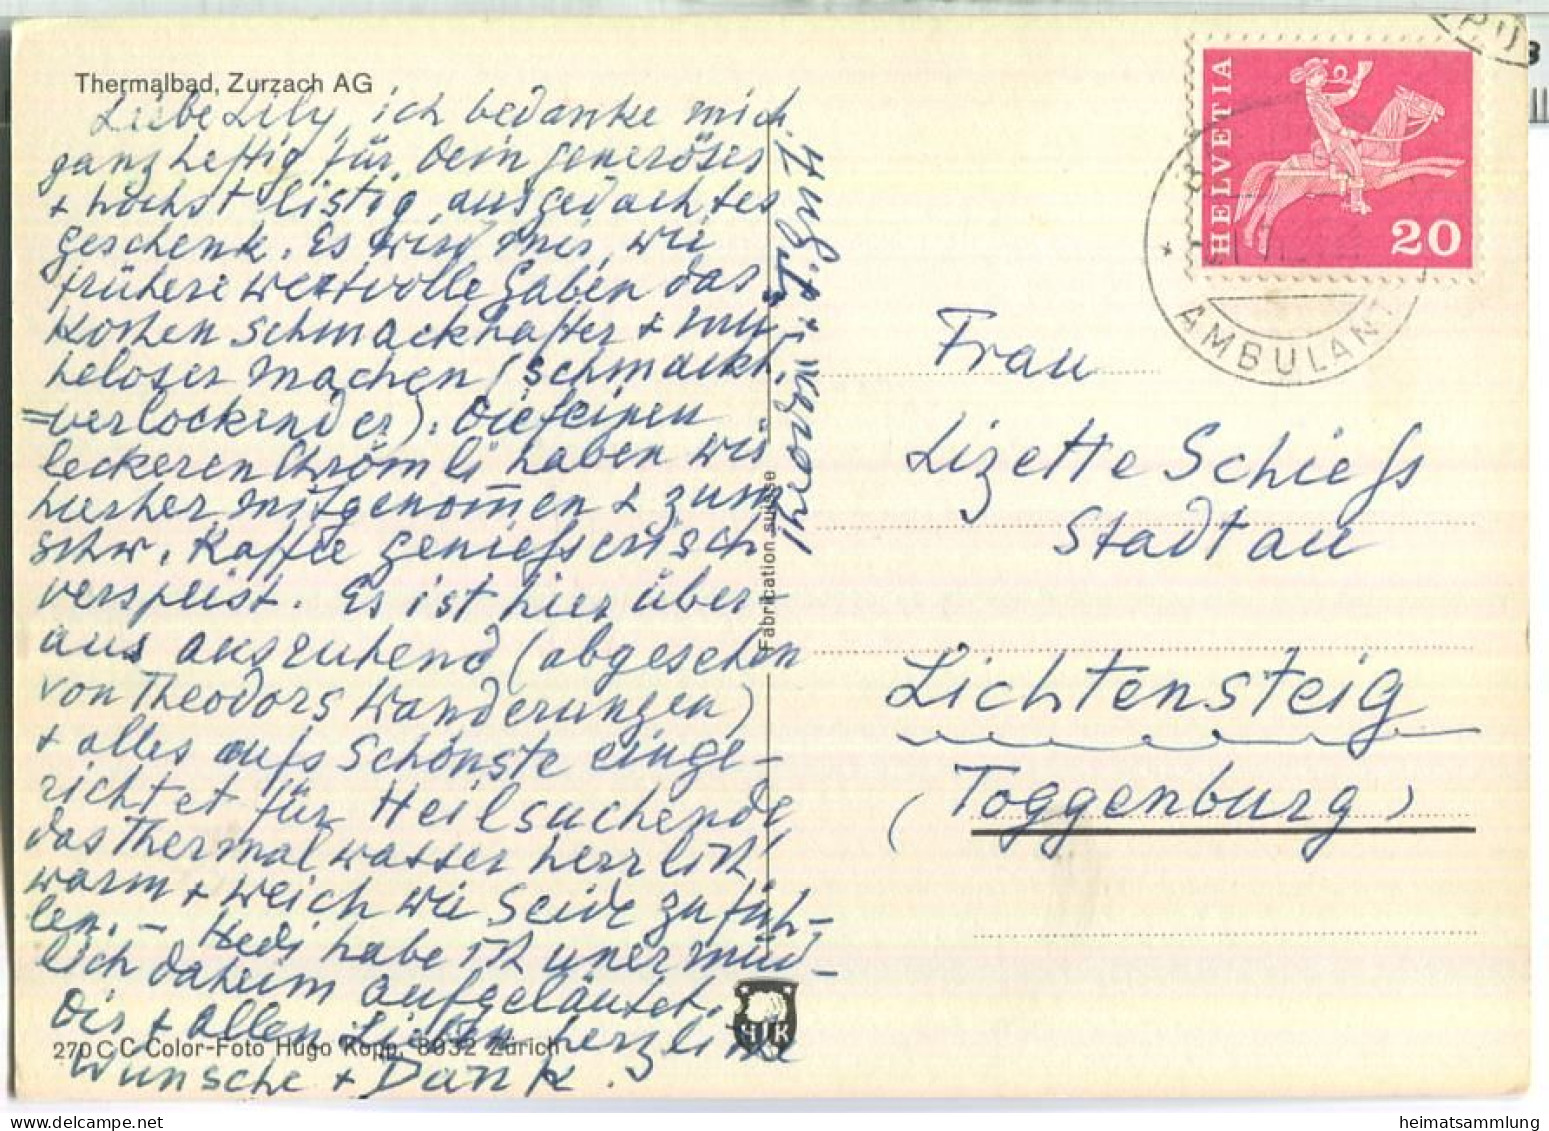 Thermalbad, Zurzach AG
Liebe Lily, ich bedanke mich
ganz heftig für Dein generöses
+ höchst listig ausgedachtes
geschenk. Es wird mir, wie
frühere wertvolle Gaben das
Kochen schmackhafter + mü-
heloser machen (schmackh.
=verlockender). Die feinen
leckeren Chrömli haben wir
hierher mitgenom̅en + zum
schw. Kaffee genießerisch
verspeist. Es ist hier über-
aus ausruhend (abgesehen
von Theodors Wanderungen)
+ alles aufs Schönste einge-
richtet für Heilsuchende
das Thermalwasser herrlich
warm + weich wie Seide zu füh-
len. – Hedi habe ich unermüd-
lich daheim aufgeläutet.
Dir + allen Lieben herzliche
Wünsche + Dank.
270 C C Color-Foto Hugo Kopp, 8032 Zürich
Fabrication suisse
HK
HELVETIA
20
AMBULANT
Frau
Lizette Schieß
Stadtau
Lichtensteig
(Toggenburg)
heimatsammlung